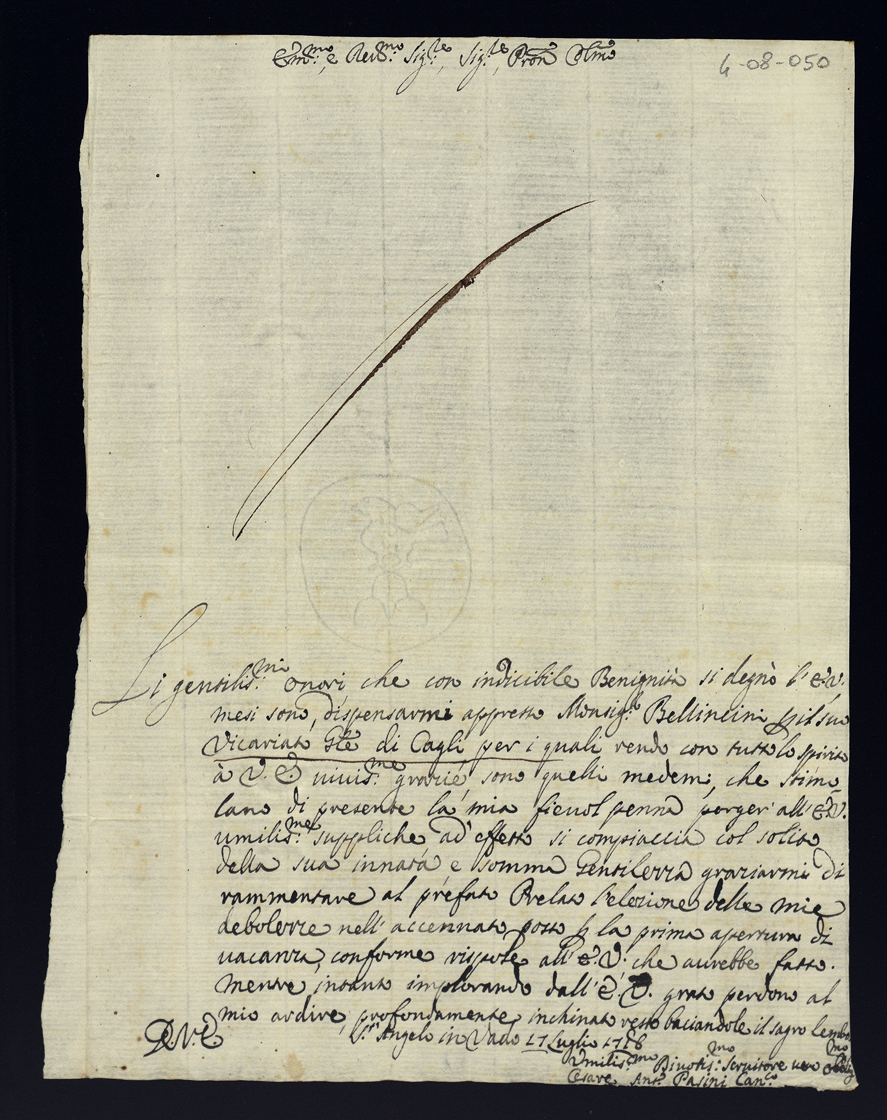 Em:mo, e Reu:mo Sig:re, Sig:re, Pron Colmo
4-08-050
Li gentilis:mi onori che con indicibile Benignità si degnò l'E.V.
mesi sono, dispensarmi appresso Monsig:r Bellincini p il suo
Vicariato Gle di Cagli per i quali rendo con tutto lo spirito
à V.E. uiuis:me grazie sono quelli medemi, che stimo=
lano di presente la mia fieuol penna porger all'E.V.
umilis:me suppliche ad effetto si compiaccia col solito
della sua innata, e somma Gentilezza graziarmi di
rammentare al prefato Prelato l'elezione delle mie
debolezze nell'accennato posto p la prima apertura di
uacanza, conforme rispose all'E.V. che aurebbe fatto.
Mentre intanto implorando dall'E.V. grato perdono al
mio ardire, profondamente inchinato resto baciandole il sagro lembo
D.V.E.
S. Angelo in Vado 17 Luglio 1718
Vmilis:mo Diuotis:mo Seruitore uero
Cesare Ant:o Pasini Can:co